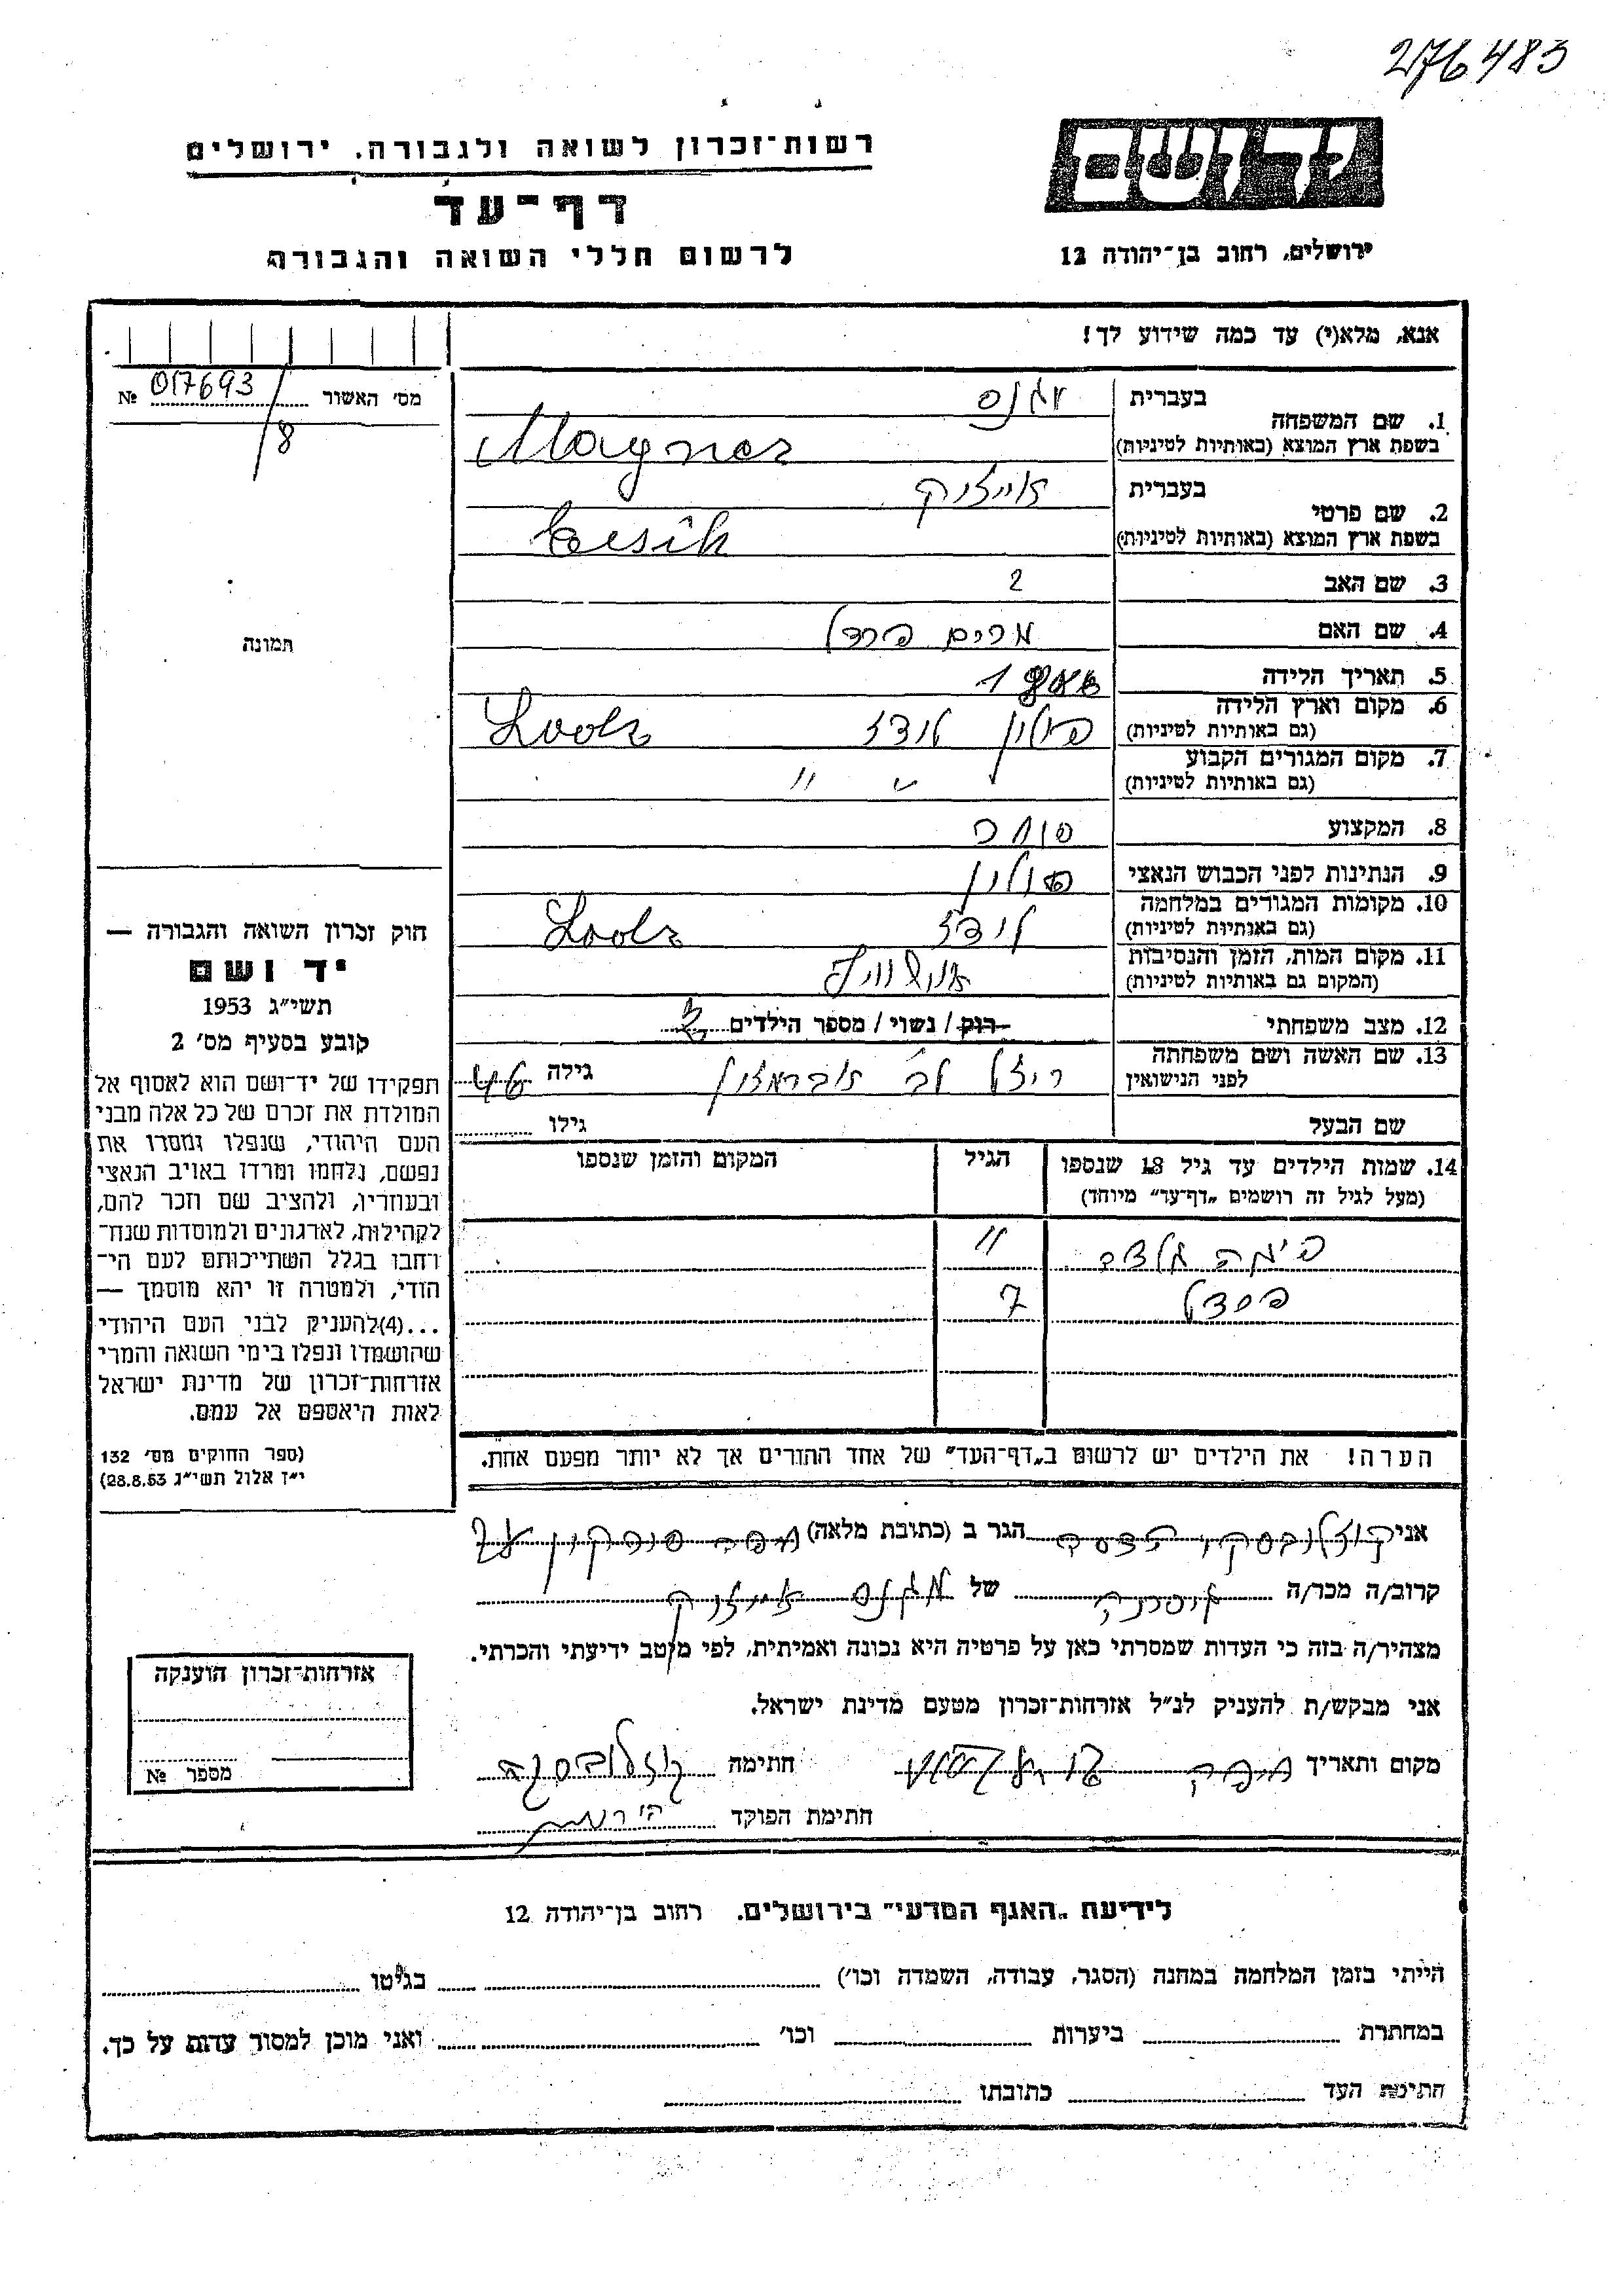 276483
רשות־זכרון לשואה ולגבורה, ירושלים
דף־עד
לרשום חללי השואה והגבורה
יד ושם
ירושלים, רחוב בן־יהודה 12
אנא, מלא(י) עד כמה שידוע לך!
מס׳ האשור № 017693/8
1. שם המשפחה
בעברית מגנס
בשפת ארץ המוצא (באותיות לטיניות) Magnes
2. שם פרטי
בעברית אייזיק
בשפת ארץ המוצא (באותיות לטיניות)
3. שם האב
4. שם האם מרים
5. תאריך הלידה
6. מקום וארץ הלידה
(גם באותיות לטיניות) פולין לודז Lodz
7. מקום המגורים הקבוע
(גם באותיות לטיניות) " "
8. המקצוע סוחר
9. הנתינות לפני הכבוש הנאצי פולין
10. מקומות המגורים במלחמה
(גם באותיות לטיניות) לודז Lodz
11. מקום המות, הזמן והנסיבות
(המקום גם באותיות לטיניות)
12. מצב משפחתי רוק / נשוי / מספר הילדים
13. שם האשה ושם משפחתה
לפני הנישואין גילה
שם הבעל גילו
14. שמות הילדים עד גיל 18 שנספו
(מעל לגיל זה רושמים „דף־עד״ מיוחד)
הגיל
המקום והזמן שנספו
11
7
הערה! את הילדים יש לרשום ב„דף־העד״ של אחד ההורים אך לא יותר מפעם אחת.
תמונה
חוק זכרון השואה והגבורה —
יד ושם
תשי״ג 1953
קובע בסעיף מס׳ 2
תפקידו של יד־ושם הוא לאסוף אל
המולדת את זכרם של כל אלה מבני
העם היהודי, שנפלו ומסרו את
נפשם, נלחמו ומרדו באויב הנאצי
ובעוזריו, ולהציב שם וזכר להם,
לקהילות, לארגונים ולמוסדות שנח־
רחבו בגלל השתייכותם לעם הי־
הודי, ולמטרה זו יהא מוסמך —
...(4)להעניק לבני העם היהודי
שהושמדו ונפלו בימי השואה והמרי
אזרחות־זכרון של מדינת ישראל
לאות היאספם אל עמם.
(ספר החוקים מס׳ 132
י״ז אלול תשי״ג 28.8.53)
אני הגר ב (כתובת מלאה)
קרוב/ה מכר/ה של מגנס אייזיק
מצהיר/ה בזה כי העדות שמסרתי כאן על פרטיה היא נכונה ואמיתית, לפי מיטב ידיעתי והכרתי.
אני מבקש/ת להעניק לנ״ל אזרחות־זכרון מטעם מדינת ישראל.
מקום ותאריך חיפה חתימה
חתימת הפוקד
אזרחות־זכרון הוענקה
מספר №
לידיעת „האגף המדעי״ בירושלים. רחוב בן־יהודה 12
הייתי בזמן המלחמה במחנה (הסגר, עבודה, השמדה וכו׳) בגיטו
במחתרת ביערות וכו׳ ואני מוכן למסור עדות על כך.
חתימת העד כתובתו